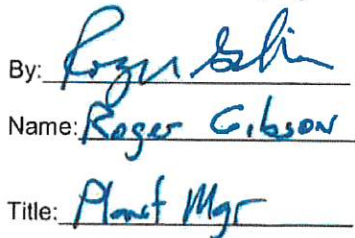 By: Roger Gibson
Name: Roger Gibson
Title: Plant Mgr